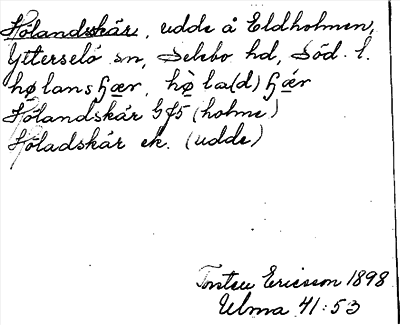 Hölandsskär, udde å Eldholmen,
Ytterselö sn, Selebo hd, Söd. l.
hølansʃær, hø̀la(d)ʃǽr
Hölandskär Gf5 (holme)
Höladskär ek. (udde)
Torsten Ericsson 1898
Ulma 41:53